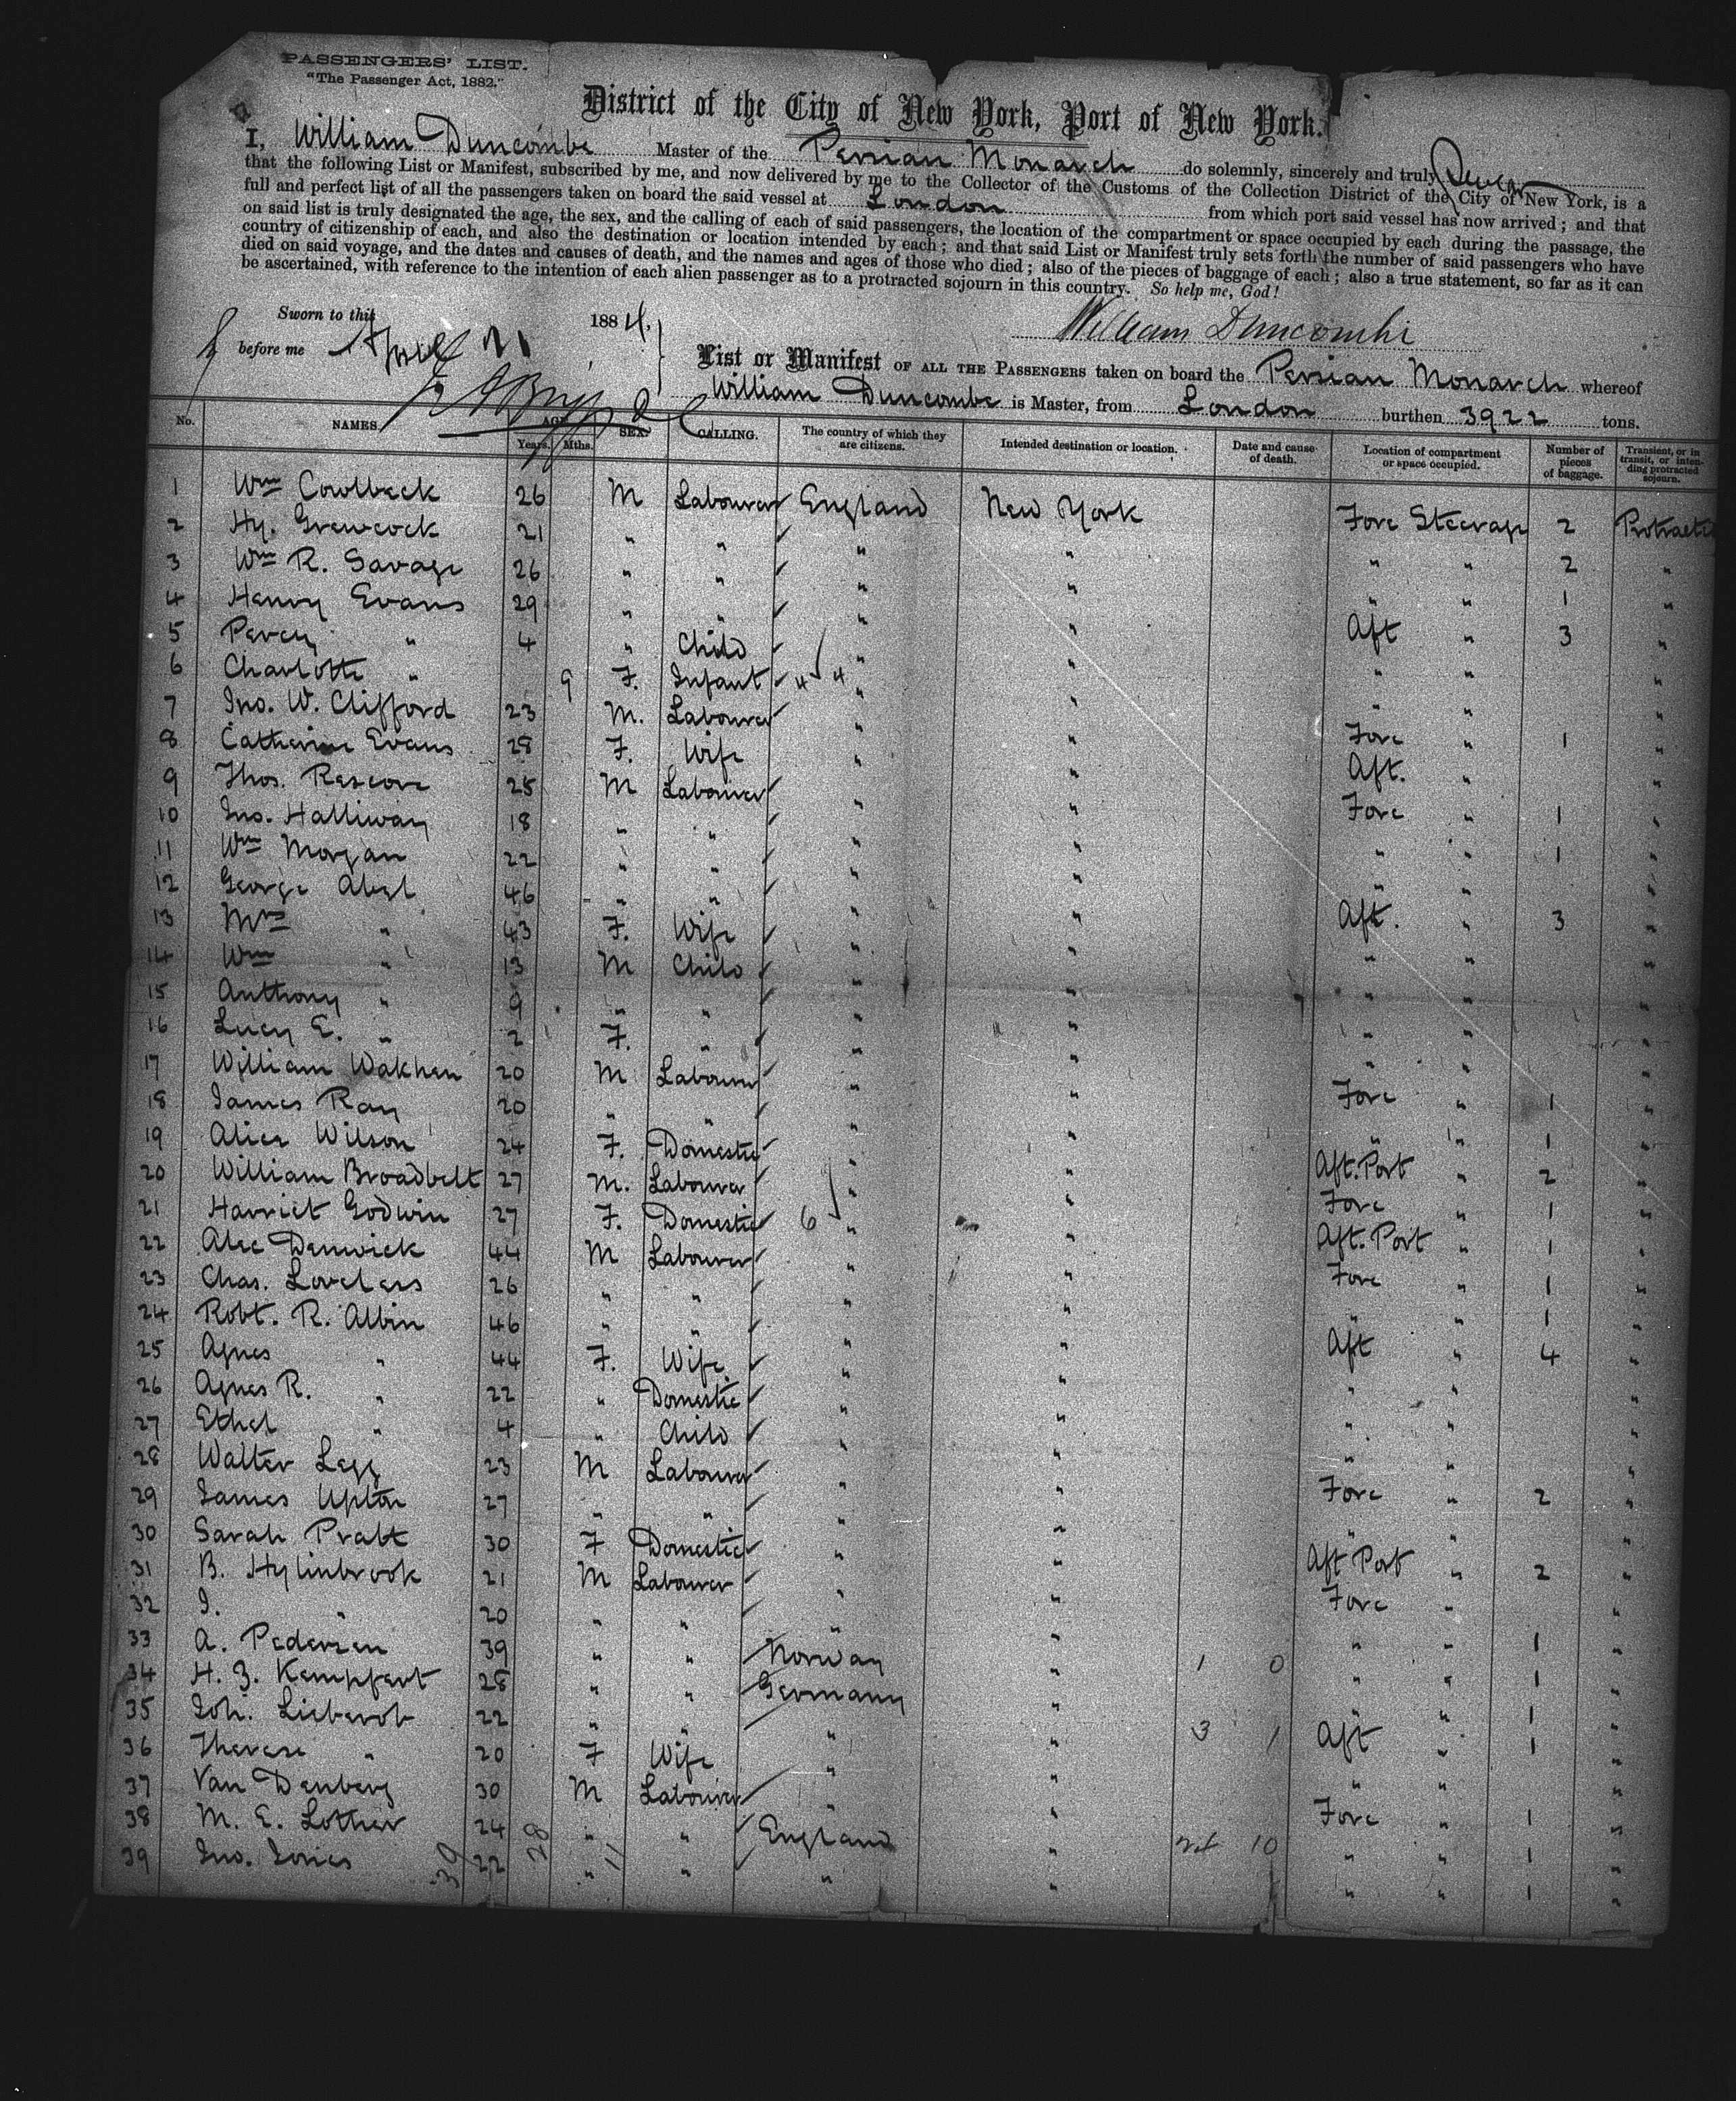 PASSENGERS' LIST.
"The Passenger Act, 1882."
District of the City of New York, Port of New York.
I, William Duncombe Master of the Persian Monarch do solemnly, sincerely and truly Swear
that the following List or Manifest, subscribed by me, and now delivered by me to the Collector of the Customs of the Collection District of the City of New York, is a
full and perfect list of all the passengers taken on board the said vessel at London from which port said vessel has now arrived; and that
on said list is truly designated the age, the sex, and the calling of each of said passengers, the location of the compartment or space occupied by each during the passage, the
country of citizenship of each, and also the destination or location intended by each; and that said List or Manifest truly sets forth the number of said passengers who have
died on said voyage, and the dates and causes of death, and the names and ages of those who died; also of the pieces of baggage of each; also a true statement, so far as it can
be ascertained, with reference to the intention of each alien passenger as to a protracted sojourn in this country. So help me, God!
Sworn to this 1884. William Duncombe
before me April 21
List or Manifest OF ALL THE PASSENGERS taken on board the Persian Monarch whereof
William Duncombe is Master, from London burthen 3922 tons.
No. NAMES. AGE Years. Mths. SEX. CALLING. The country of which they are citizens. Intended destination or location. Date and cause of death. Location of compartment or space occupied. Number of pieces of baggage. Transient, or in transit, or intending protracted sojourn.
1 Wm Cowlbeck 26 M Labourer England New York Fore Steerage 2 Protracted
2 Hy. Grewcock 21 " " " " " " 2 "
3 Wm R. Savage 26 " " " " " " 1 "
4 Henry Evans 29 " " " " Aft " 3 "
5 Percy " 4 " Child " " " " "
6 Charlotte " 9 F. Infant 4 4 " " " " "
7 Jno. W. Clifford 23 M. Labourer " " Fore " 1 "
8 Catherine Evans 28 F. Wife " " Aft. " "
9 Thos. Rescore 25 M Labourer " " Fore " 1 "
10 Jno. Halliway 18 " " " " " " 1 "
11 Wm Morgan 22 " " " " " " "
12 George Abel 46 " " " " Aft. " 3 "
13 Mrs " 43 F. Wife " " " " "
14 Wm " 13 M Child " " " " "
15 Anthony " 9 " " " " " " "
16 Lucy E. " 2 F. " " " " " "
17 William Wakhen 20 M Labourer " " Fore " 1 "
18 James Ray 20 " " " " " " 1 "
19 Alice Wilson 24 F. Domestic " " Aft. Port " 2 "
20 William Broadbelt 27 M. Labourer " " Fore " 1 "
21 Harriet Godwin 27 F. Domestic 6 " " Aft. Port " 1 "
22 Alec Denwick 44 M Labourer " " Fore " 1 "
23 Chas. Loveless 26 " " " " " " 1 "
24 Robt. R. Albin 46 " " " " Aft " 4 "
25 Agnes " 44 F. Wife " " " " "
26 Agnes R. " 22 " Domestic " " " " "
27 Ethel " 4 " Child " " " " "
28 Walter Legg 23 M Labourer " " Fore " 2 "
29 James Upton 27 " " " " " " "
30 Sarah Pratt 30 F Domestic " " Aft Port " 2 "
31 B. Hylinbrook 21 M Labourer " " Fore " "
32 J. " 20 " " " " " " 1 "
33 A. Pedersen 39 " " Norway " 1 0 " " 1 "
34 H. Z. Kempfert 28 " " Germany " " " 1 "
35 Joh. Lieberot 22 " " " " 3 1 Aft " 1 "
36 Therese " 20 F Wife " " " " "
37 Van Denberg 30 M Labourer " " Fore " 1 "
38 M. E. Lother 24 " " England " 10 " " 1 "
39 Jno. Jones 22 " " " " " " 1 "
39 28 11